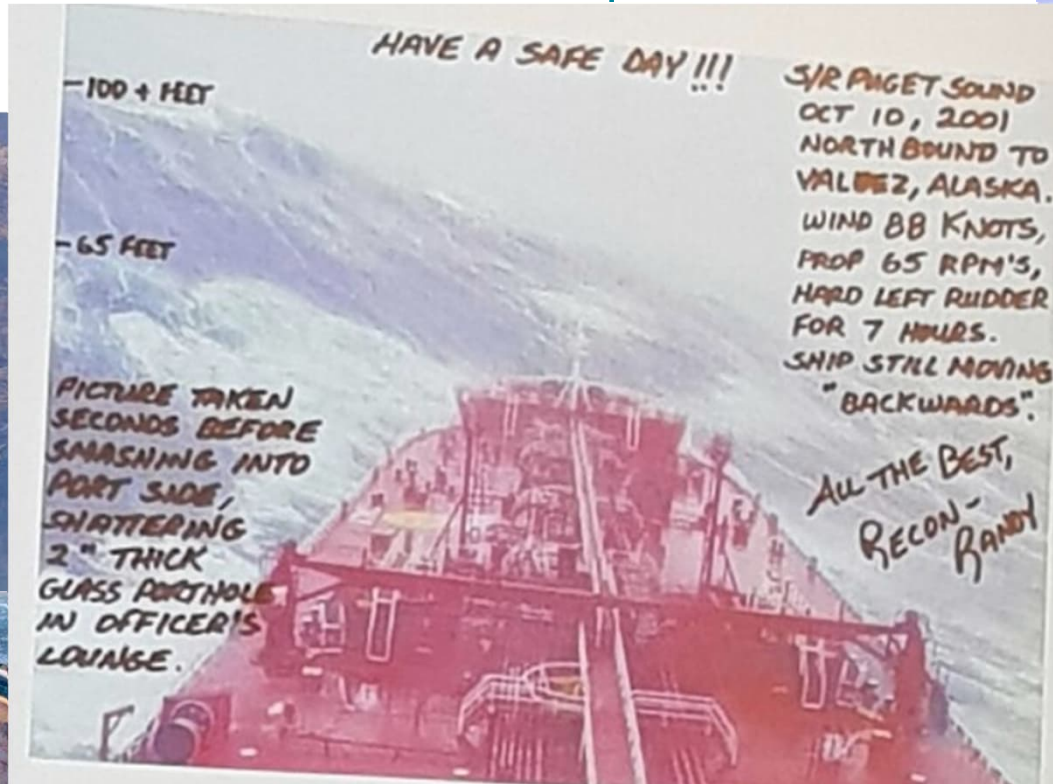 HAVE A SAFE DAY!!!
-100 + FEET
-65 FEET
S/R PUGET SOUND
OCT 10, 2001
NORTHBOUND TO
VALDEZ, ALASKA.
WIND 88 KNOTS,
PROP 65 RPM'S,
HARD LEFT RUDDER
FOR 7 HOURS.
SHIP STILL MOVING
"BACKWARDS".
PICTURE TAKEN
SECONDS BEFORE
SMASHING INTO
PORT SIDE,
SHATTERING
2" THICK
GLASS PORTHOLE
IN OFFICER'S
LOUNGE.
ALL THE BEST,
RECON-
RANDY